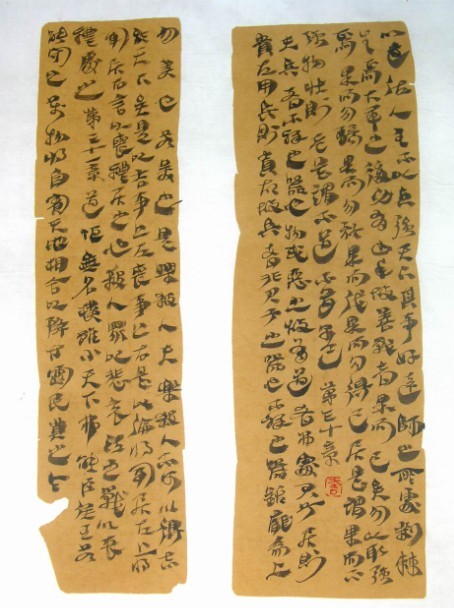 以道佐人主不以兵強天下其事好還師之所處荊棘
生焉大軍之後必有凶年故善戰者果而已矣勿以取強
焉果而勿驕果而勿矜果而伐果而勿得已居是謂果而不
強物壯則老是謂不道不道早已 第三十章
夫兵者不祥之器也物或惡之故有道者弗處君子居則
貴左用兵則貴右故兵者非君子之器也不祥之器也銛龐為上
勿美也若美之是樂殺人夫樂殺人不可以得志
於天下矣是以吉事上左喪事上右是以偏將軍居左上將
軍居右言以喪禮居之也殺人眾以悲哀莅之戰以喪
禮處之 第三十一章 道恒無名樸雖小天下弗能臣侯王若
能守之萬物將自賓天地相合以降甘露民莫之令